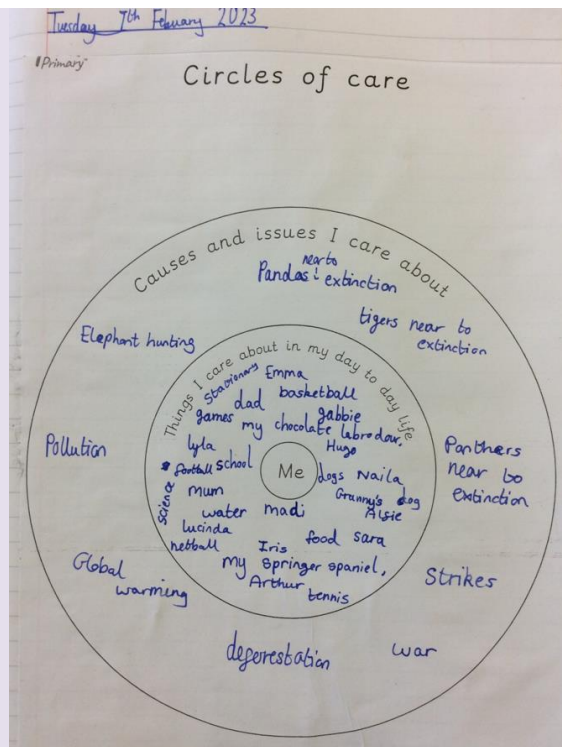 Tuesday 7th Febuary 2023
Primary
Circles of care
Causes and issues I care about
near to
Pandas extinction
tigers near to
extinction
Elephant hunting
Pollution
Panthers
near to
extinction
Global
warming
Strikes
deforestation
war
Things I care about in my day to day life
Stationary Emma
dad basketball
games gabbie
my chocolate labrodour,
Hugo
lyla
football school
Me
dogs Naila
science
mum
Granny's dog
Algie
water madi
lucinda
food sara
netball
Iris
my springer spaniel,
Arthur
tennis